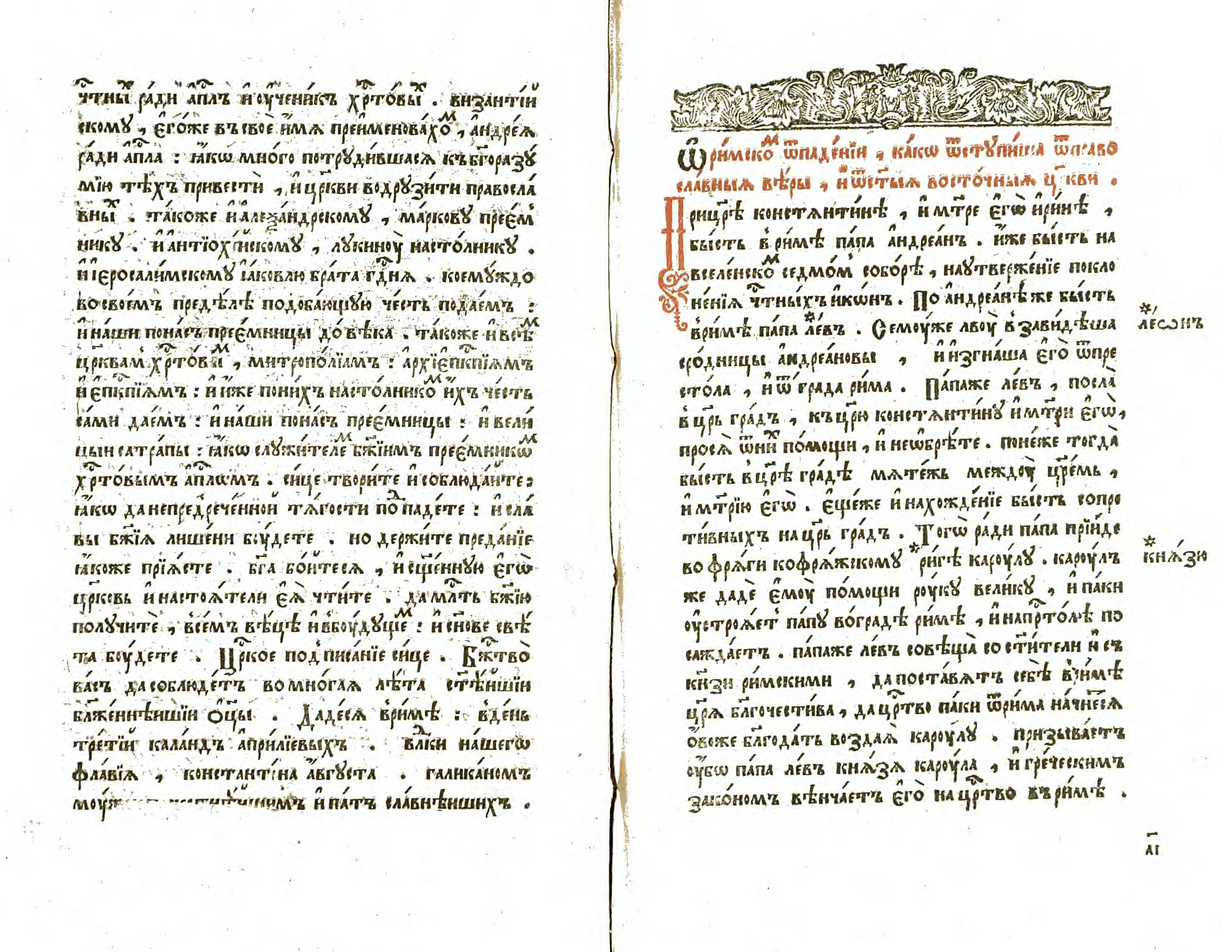 чⷭ҇тны́хъ ра́ди а҆пⷭ҇лъ и҆ оу҆чени́къ хрⷭ҇то́выⷯ . византі́й
скому , є҆го́же въ своѐ и҆́мѧ преименова́хоⷨ , а҆ндре́ѧ
ра́ди а҆пⷭ҇ла : ꙗ҆́кѡ мно́го потруди́вшасѧ къ бг҃оразꙋ́
мїю тѣ́хъ привестѝ , и҆ цр҃кви водрузи́ти правосла́
вныⷯ . та́коже и҆ а҆леѯа́ндрскому , ма́ркову преє́м
нику . и҆ а҆нтїохі́йскому , лукиноу̀ насто́лнику .
и҆ і҆еросали́мскому і҆а́ковлю бра́та гдⷭ҇нѧ . коемуждо
во свое́мъ предѣ́лѣ подоба́ющую че́сть пода́емъ :
и҆ на́ши по на́съ прее́мницы до вѣ́ка . та́коже и҆ всѣ̑ⷨ
цр҃квамъ хрⷭ҇то́выⷨ , митропо́лїамъ : а҆рхїе҆пкⷭ҇пїѧмъ
и҆ е҆пкⷭ҇пїѧмъ : и҆ и҆́же по ни́хъ насто́лникоⷨ и҆́хъ че́сть
са́ми дае́мъ : и҆ на́ши по на́съ прее́мницы : и҆ вели́
цыи сатра́пы : ꙗ҆́кѡ служи́телеⷨ бж҃їимъ прее́мникѡⷨ
хрⷭ҇то́вымъ а҆пⷭ҇лѡмъ . си́це твори́те и҆ соблюда́йте :
ꙗ҆́кѡ да непредре́ченной тѧ́гости попаде́те : и҆ сла́
вы бж҃їѧ лише́ни бꙋ́дете . но держи́те преда́нїе
ꙗ҆́коже прїѧ́сте . бг҃а бо́йтесѧ , и҆ сщ҃е́нную є҆гѡ̀
цр҃ковь и҆ настоѧ́тели є҆ѧ̀ чти́те . да мл҃ть бж҃їю
получи́те , в се́мъ вѣ́цѣ и҆ в боу́дущеⷨ : и҆ сн҃ове свѣ́
та боу́дете . Цр҃ское подписа́нїе си́це . Бжⷭ҇тво̀
ва́съ да соблюде́тъ во мно́гаѧ лѣ́та ст҃ѣ́йшїи
бл҃же́ннѣйшїи ѻ҆ц҃ы̀ . Даде́сѧ в ри́мѣ : в де́нь
тре́тїй кала́ндъ а҆прилїевыхъ . влⷣки на́шегѡ
фла́вїѧ , константи́на а҆́вгуста . галика́номъ
и҆ па́тъ сла́внѣйшихъ .
Ѡ҆ ри́мскоⷨ ѿпаде́нїи , ка́кѡ ѿступи́ша ѿ право
сла́вныѧ вѣ́ры , и҆ ѿ ст҃ы́ѧ восто́чныѧ цр҃кви .
При цр҃ѣ̀ констѧнти́нѣ , и҆ мт҃ре є҆гѡ̀ и҆ри́нѣ ,
бы́сть в ри́мѣ па́па а҆ндреа́нъ . и҆́же бы́сть на
вселе́нскоⷨ седмо́мъ собо́рѣ , на утверже́нїе покло
не́нїѧ чⷭ҇тны́хъ и҆ко́нъ . По а҆ндреа́нѣ же бы́сть
в ри́мѣ па́па * ле́въ . Семоу́же лвоу̀ в завидѣ́ша
* лео́нъ
сро́дницы а҆ндреа́новы , и҆ и҆згна́ша є҆го̀ ѿ пре
сто́ла , и҆ ѿ гра́да ри́ма . Па́па же ле́въ , посла̀
в цр҃ь гра́дъ , къ цр҃ю̀ констѧнти́ну и҆ мт҃ри є҆гѡ̀ ,
просѧ̀ ѿ ни́хъ по́мощи , и҆ не ѡ҆брѣ́те . поне́же тогда̀
бы́сть в цр҃ѣ̀ гра́дѣ мѧте́жь междоу̀ цр҃е́мь ,
и҆ мт҃рїю є҆гѡ̀ . Є҆ще́же и҆ нахожде́нїе бы́сть сопро
ти́вныхъ на цр҃ь гра́дъ . Тогѡ̀ ра́ди па́па прїи́де
во фрѧ́ги ко фрѧ́жскому * ри́гѣ кароу́лу . кароу́лъ
* кнѧ́зю
же дадѐ є҆моу̀ по́мощи роу́ку вели́ку , и҆ па́ки
оу҆строѧ́етъ па́пу во гра́дѣ ри́мѣ , и҆ на прⷭ҇то́лѣ по
сажда́етъ . па́па же ле́въ совѣща̀ со ст҃и́тели и҆ съ
кн҃зи ри́мскими , да поста́вѧтъ себѣ̀ в ри́мѣ
цр҃ѧ̀ бл҃гочести́ва , да црⷭ҇тво па́ки ѿ ри́ма начне́тсѧ
о҆́воже бл҃года́ть воздаѧ̀ кароу́лу . призыва́етъ
оу҆́бо па́па ле́въ кнѧ́зѧ кароу́ла , и҆ гре́ческимъ
зако́номъ вѣнча́етъ є҆го̀ на црⷭ҇тво въ ри́мѣ .
а҃і